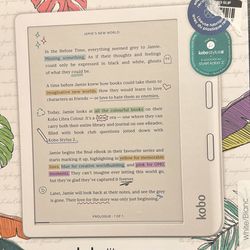 JAMIE'S NEW WORLD
In the Before Time, everything seemed grey to Jamie.
Missing something. As if their thoughts and feelings
could only be expressed in black and white, ghosts
of what they could be.
A time before Jamie knew how books could take them to
imaginative new worlds. How they would learn to love
characters as friends — or love to hate them as enemies.
Today, Jamie looks at all the colourful books on their
Kobo Libra Colour. It's a new era — one where they can
carry both their entire library and journal on one eReader,
filled with book club questions jotted down with
Kobo Stylus 2.
Jamie begins the final eBook in their favourite series and
starts marking it up, highlighting in yellow for memorable
lines, blue for creative worldbuilding, and pink for OMG
moments. They can't imagine ever letting this world go,
but they're glad they've captured it forever.
Later, Jamie will look back at their notes, and see the grey
is gone. Their love for the story was only just beginning.
PROLOGUE · 1 OF 1
kobo
kobo stylus
White/Blanc